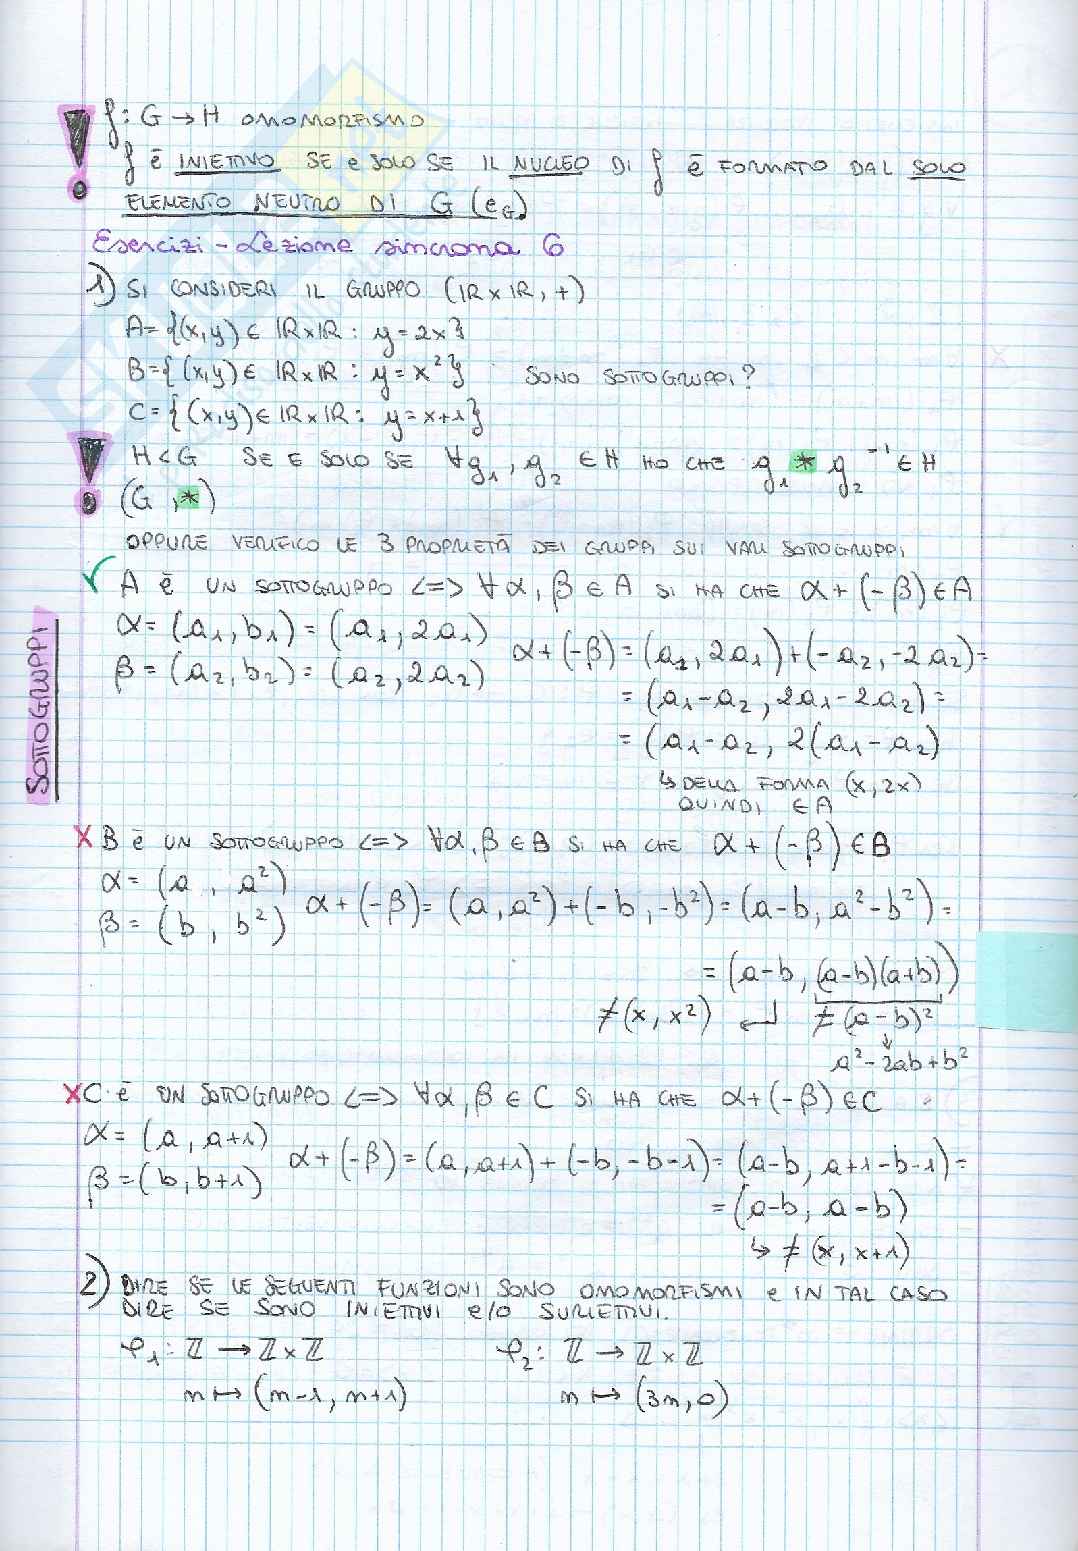 f: G → H OMOMORFISMO
f È INIETTIVO SE e SOLO SE IL NUCLEO DI f È FORMATO DAL SOLO
ELEMENTO NEUTRO DI G (e_G)
Esercizi - Lezione sincrona 6
1) SI CONSIDERI IL GRUPPO (ℝ×ℝ, +)
A = {(x,y) ∈ ℝ×ℝ : y = 2x}
B = {(x,y) ∈ ℝ×ℝ : y = x²} SONO SOTTOGRUPPI?
C = {(x,y) ∈ ℝ×ℝ : y = x+1}
H < G SE E SOLO SE ∀g₁, g₂ ∈ H HO CHE g₁ * g₂⁻¹ ∈ H
(G, *)
OPPURE VERIFICO LE 3 PROPRIETÀ DEI GRUPPI SUI VARI SOTTOGRUPPI
✓ A È UN SOTTOGRUPPO <=> ∀α, β ∈ A SI HA CHE α + (-β) ∈ A
α = (a₁, b₁) = (a₁, 2a₁)
β = (a₂, b₂) = (a₂, 2a₂)
α + (-β) = (a₁, 2a₁) + (-a₂, -2a₂) =
= (a₁-a₂, 2a₁-2a₂) =
= (a₁-a₂, 2(a₁-a₂)
↳ DELLA FORMA (x, 2x)
QUINDI ∈ A
SOTTOGRUPPI
X B È UN SOTTOGRUPPO <=> ∀α, β ∈ B SI HA CHE α + (-β) ∈ B
α = (a, a²)
β = (b, b²)
α + (-β) = (a, a²) + (-b, -b²) = (a-b, a²-b²) =
= (a-b, (a-b)(a+b))
≠ (x, x²) ↵ ≠ (a-b)²
↓
a²-2ab+b²
X C È UN SOTTOGRUPPO <=> ∀α, β ∈ C SI HA CHE α + (-β) ∈ C
α = (a, a+1)
β = (b, b+1)
α + (-β) = (a, a+1) + (-b, -b-1) = (a-b, a+1-b-1) =
= (a-b, a-b)
↳ ≠ (x, x+1)
2) DIRE SE LE SEGUENTI FUNZIONI SONO OMOMORFISMI e IN TAL CASO
DIRE SE SONO INIETTIVI e/o SURIETTIVI.
φ₁: ℤ → ℤ×ℤ φ₂: ℤ → ℤ×ℤ
n ↦ (n-1, n+1) n ↦ (3n, 0)